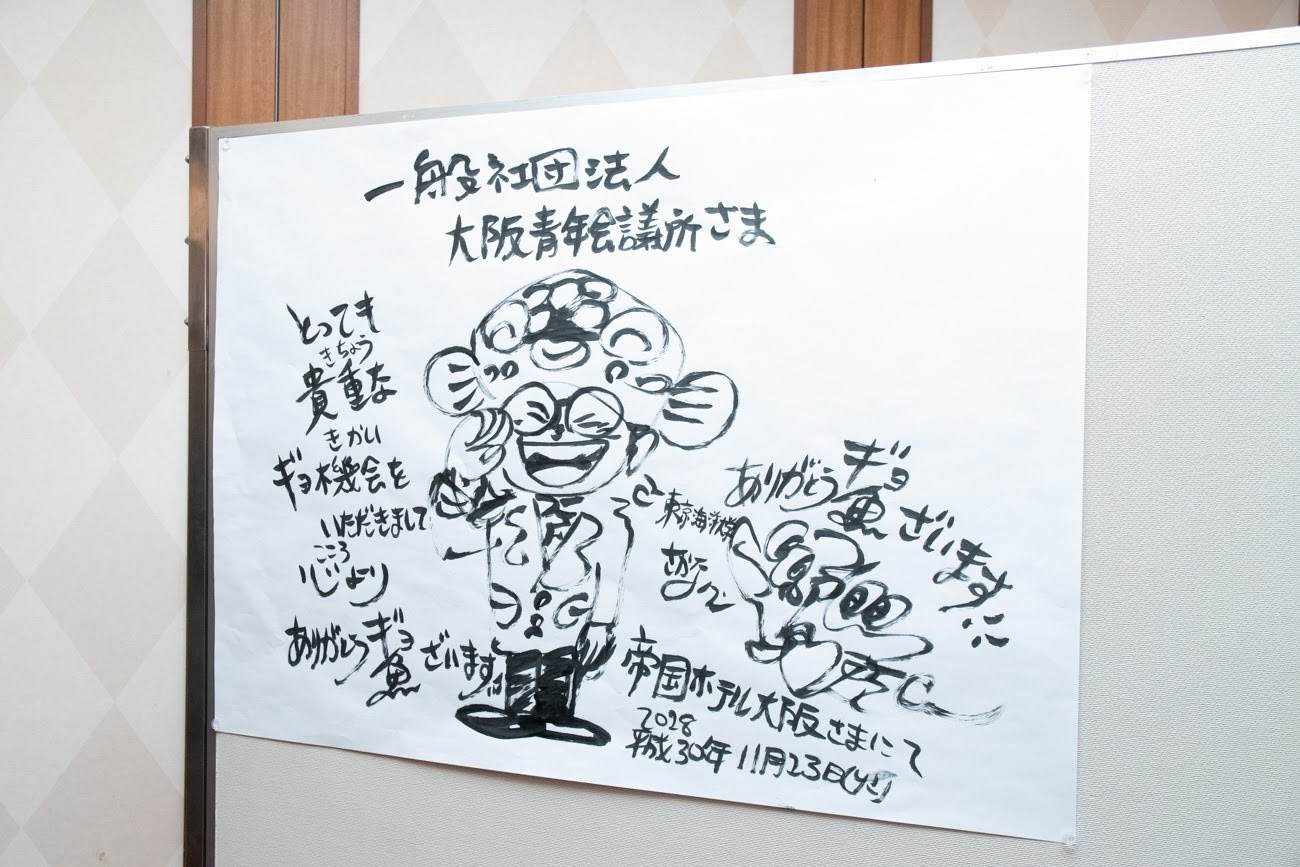 一般社団法人
大阪青年会議所さま
とっても
きちょう
貴重な
きかい
ギョ機会を
いただきまして
こころ
心より
ありがとうギョ魚ざいます
ありがとうギョ魚ざいます
東京海洋大学
さかなクン
帝国ホテル大阪さまにて
2018
平成30年11月23日